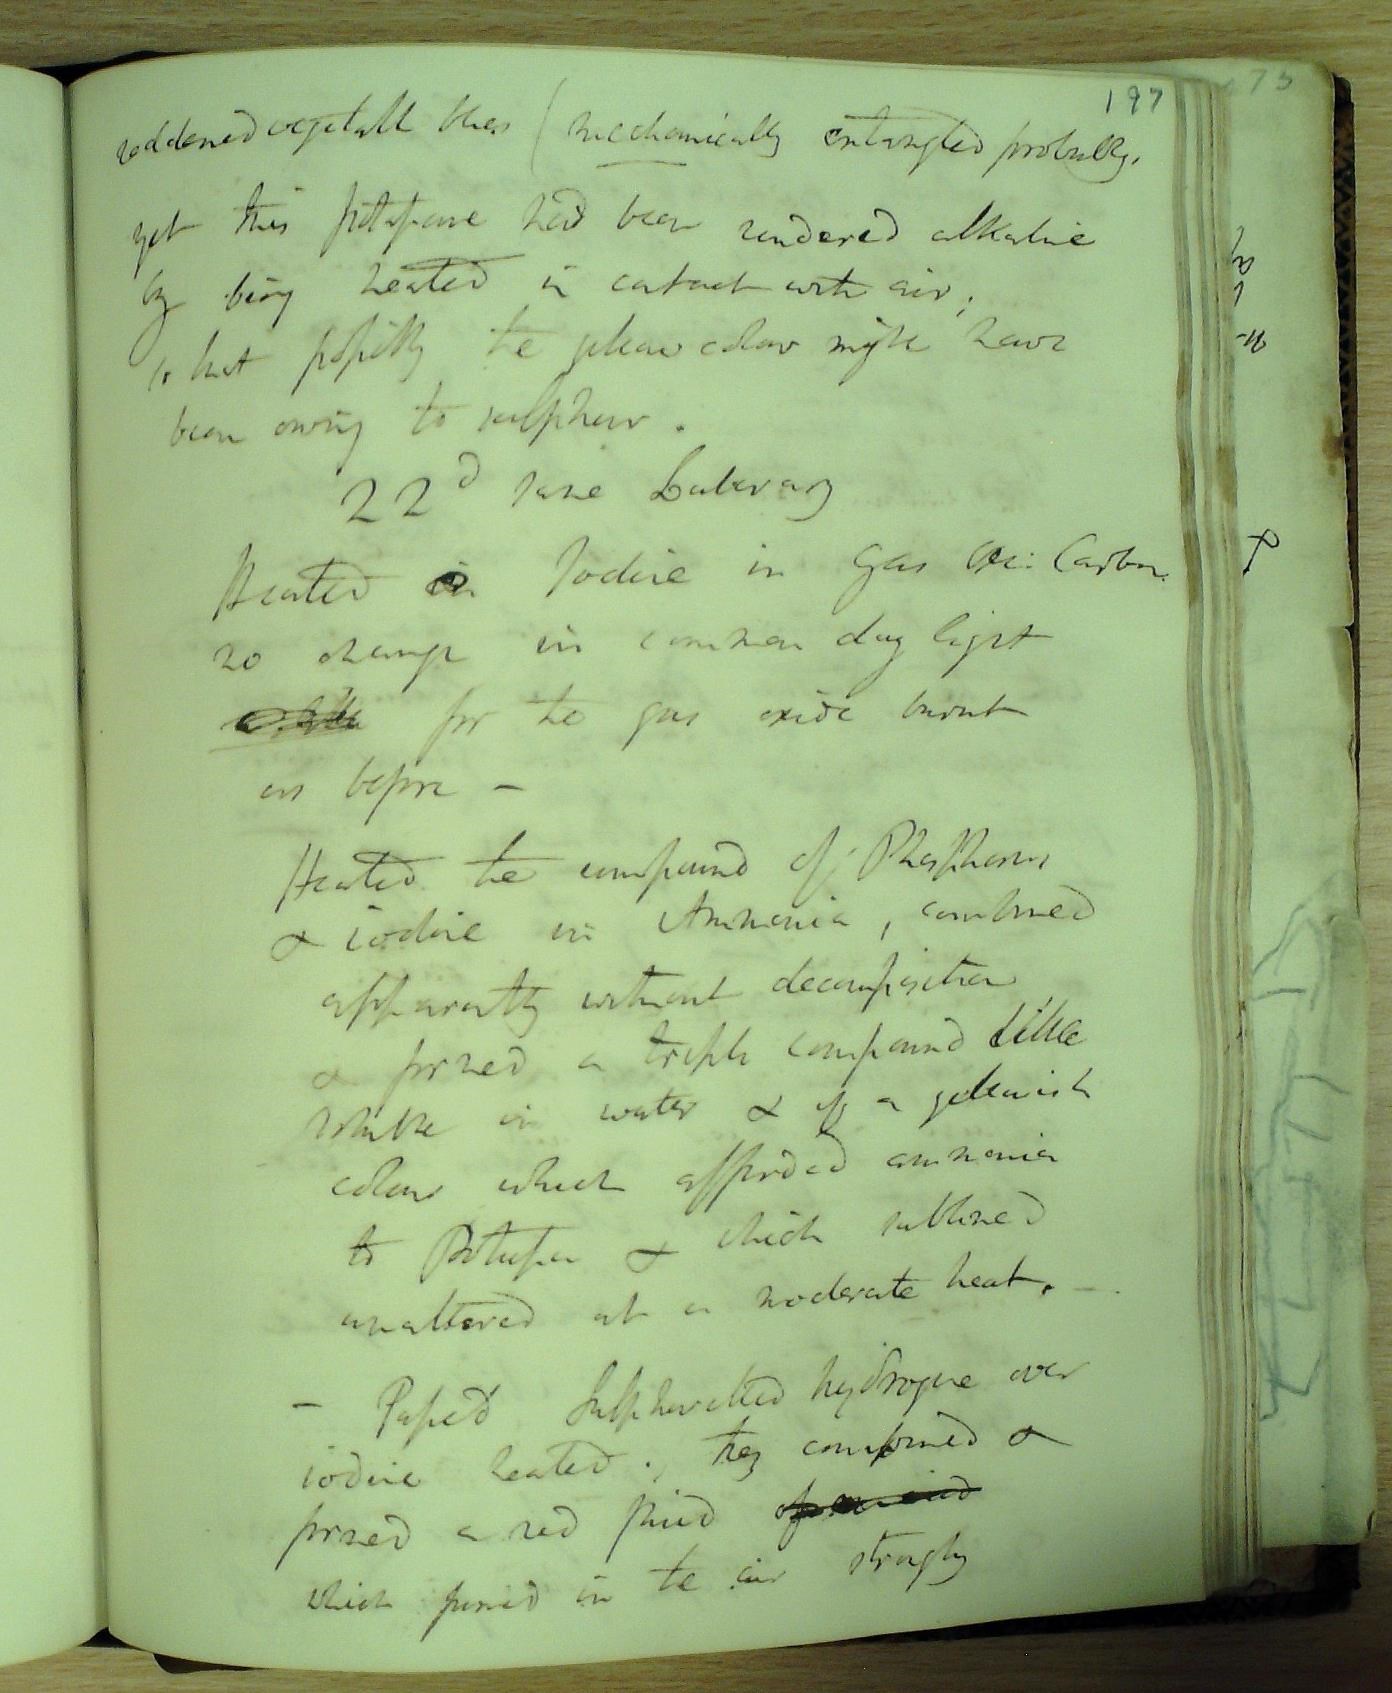 197
reddened vegetable blues (mechanically entangled probably.
yet this potassane had been rendered alkaline
by being heated in contact with air,
so that possibly the yellow colour might have
been owing to sulphur.
22d June Saturday
Heated in Iodine in gas Oxi: Carbon.
no change in common day light
for the gas oxide burnt
as before -
Heated the compound of Phosphorus
& iodine in Ammonia, combined
apparently without decomposition
& formed a triple compound little
soluble in water & of a yellowish
colour which afforded ammonia
to Potassa & which sublimed
unaltered at a moderate heat. -
- Passed Sulphuretted hydrogene over
iodine heated. they combined &
formed a red fluid
which fumed in the air strongly